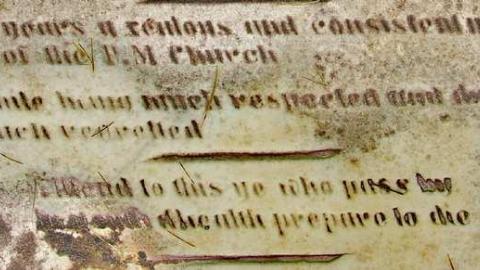 years a zealous and consistent
of the P.M Church
being much respected and
much regretted
Attend to this ye who pass
health prepare to die